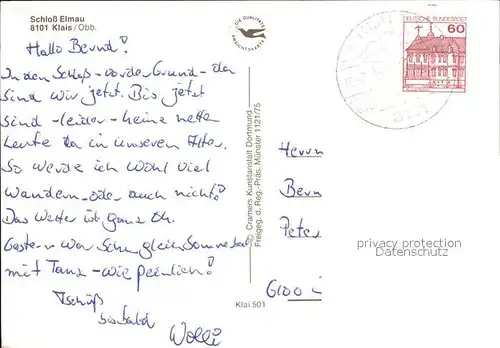 Schloß Elmau
8101 Klais/Obb.
DIE QUALITÄTS
ANSICHTSKARTE
DEUTSCHE BUNDESPOST
60
Hallo Bernd!
In den Schloß-Vorder Grund-da
sind wir jetzt. Bis jetzt
sind -leider- keine netten
Leute da in unseren Alter.
So werde ich wohl viel
wandern-oder auch nicht!
Das Wetter ist ganz Oh.
Gestern war schon gleich Sonnenbad
mit Tanz - wie peinlich!
Tschüß
bis bald
Wolli
© Cramers Kunstanstalt Dortmund
Freigeg. d. Reg.-Präs. Münster 1121/75
Klai 501
Herrn
Bern
Peter
6100
privacy protection
Datenschutz